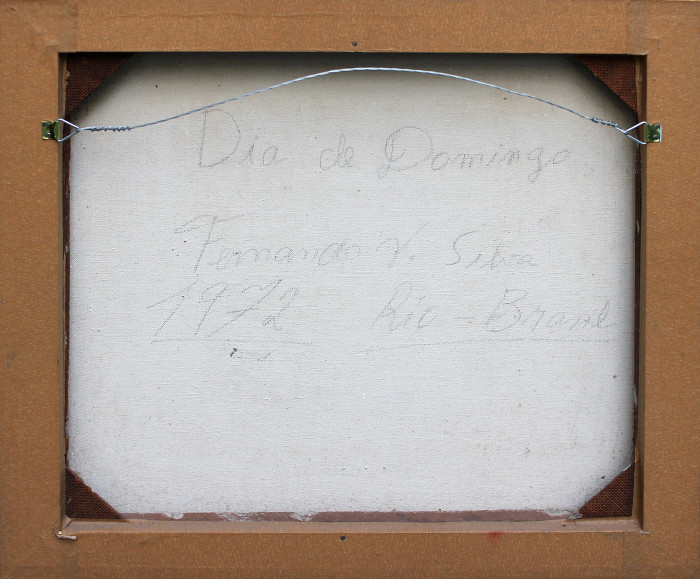 Dia de Domingo
Fernando V. Silva
1972 Rio - Brasil